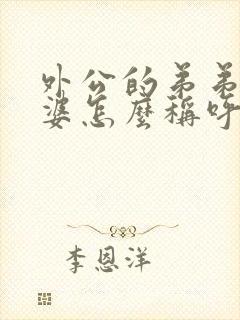 外公的弟弟
婆怎麼稱呼
李恩洋